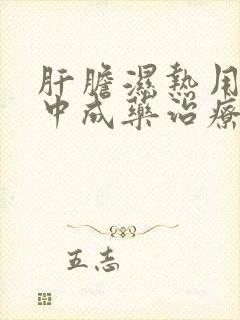 肝膽濕熱用
中成藥治療
五志